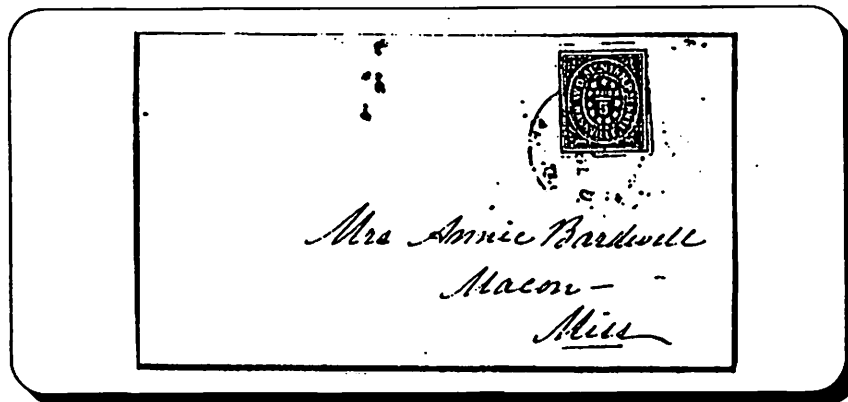 Mrs Annie Bardwell
Macon –
Miss